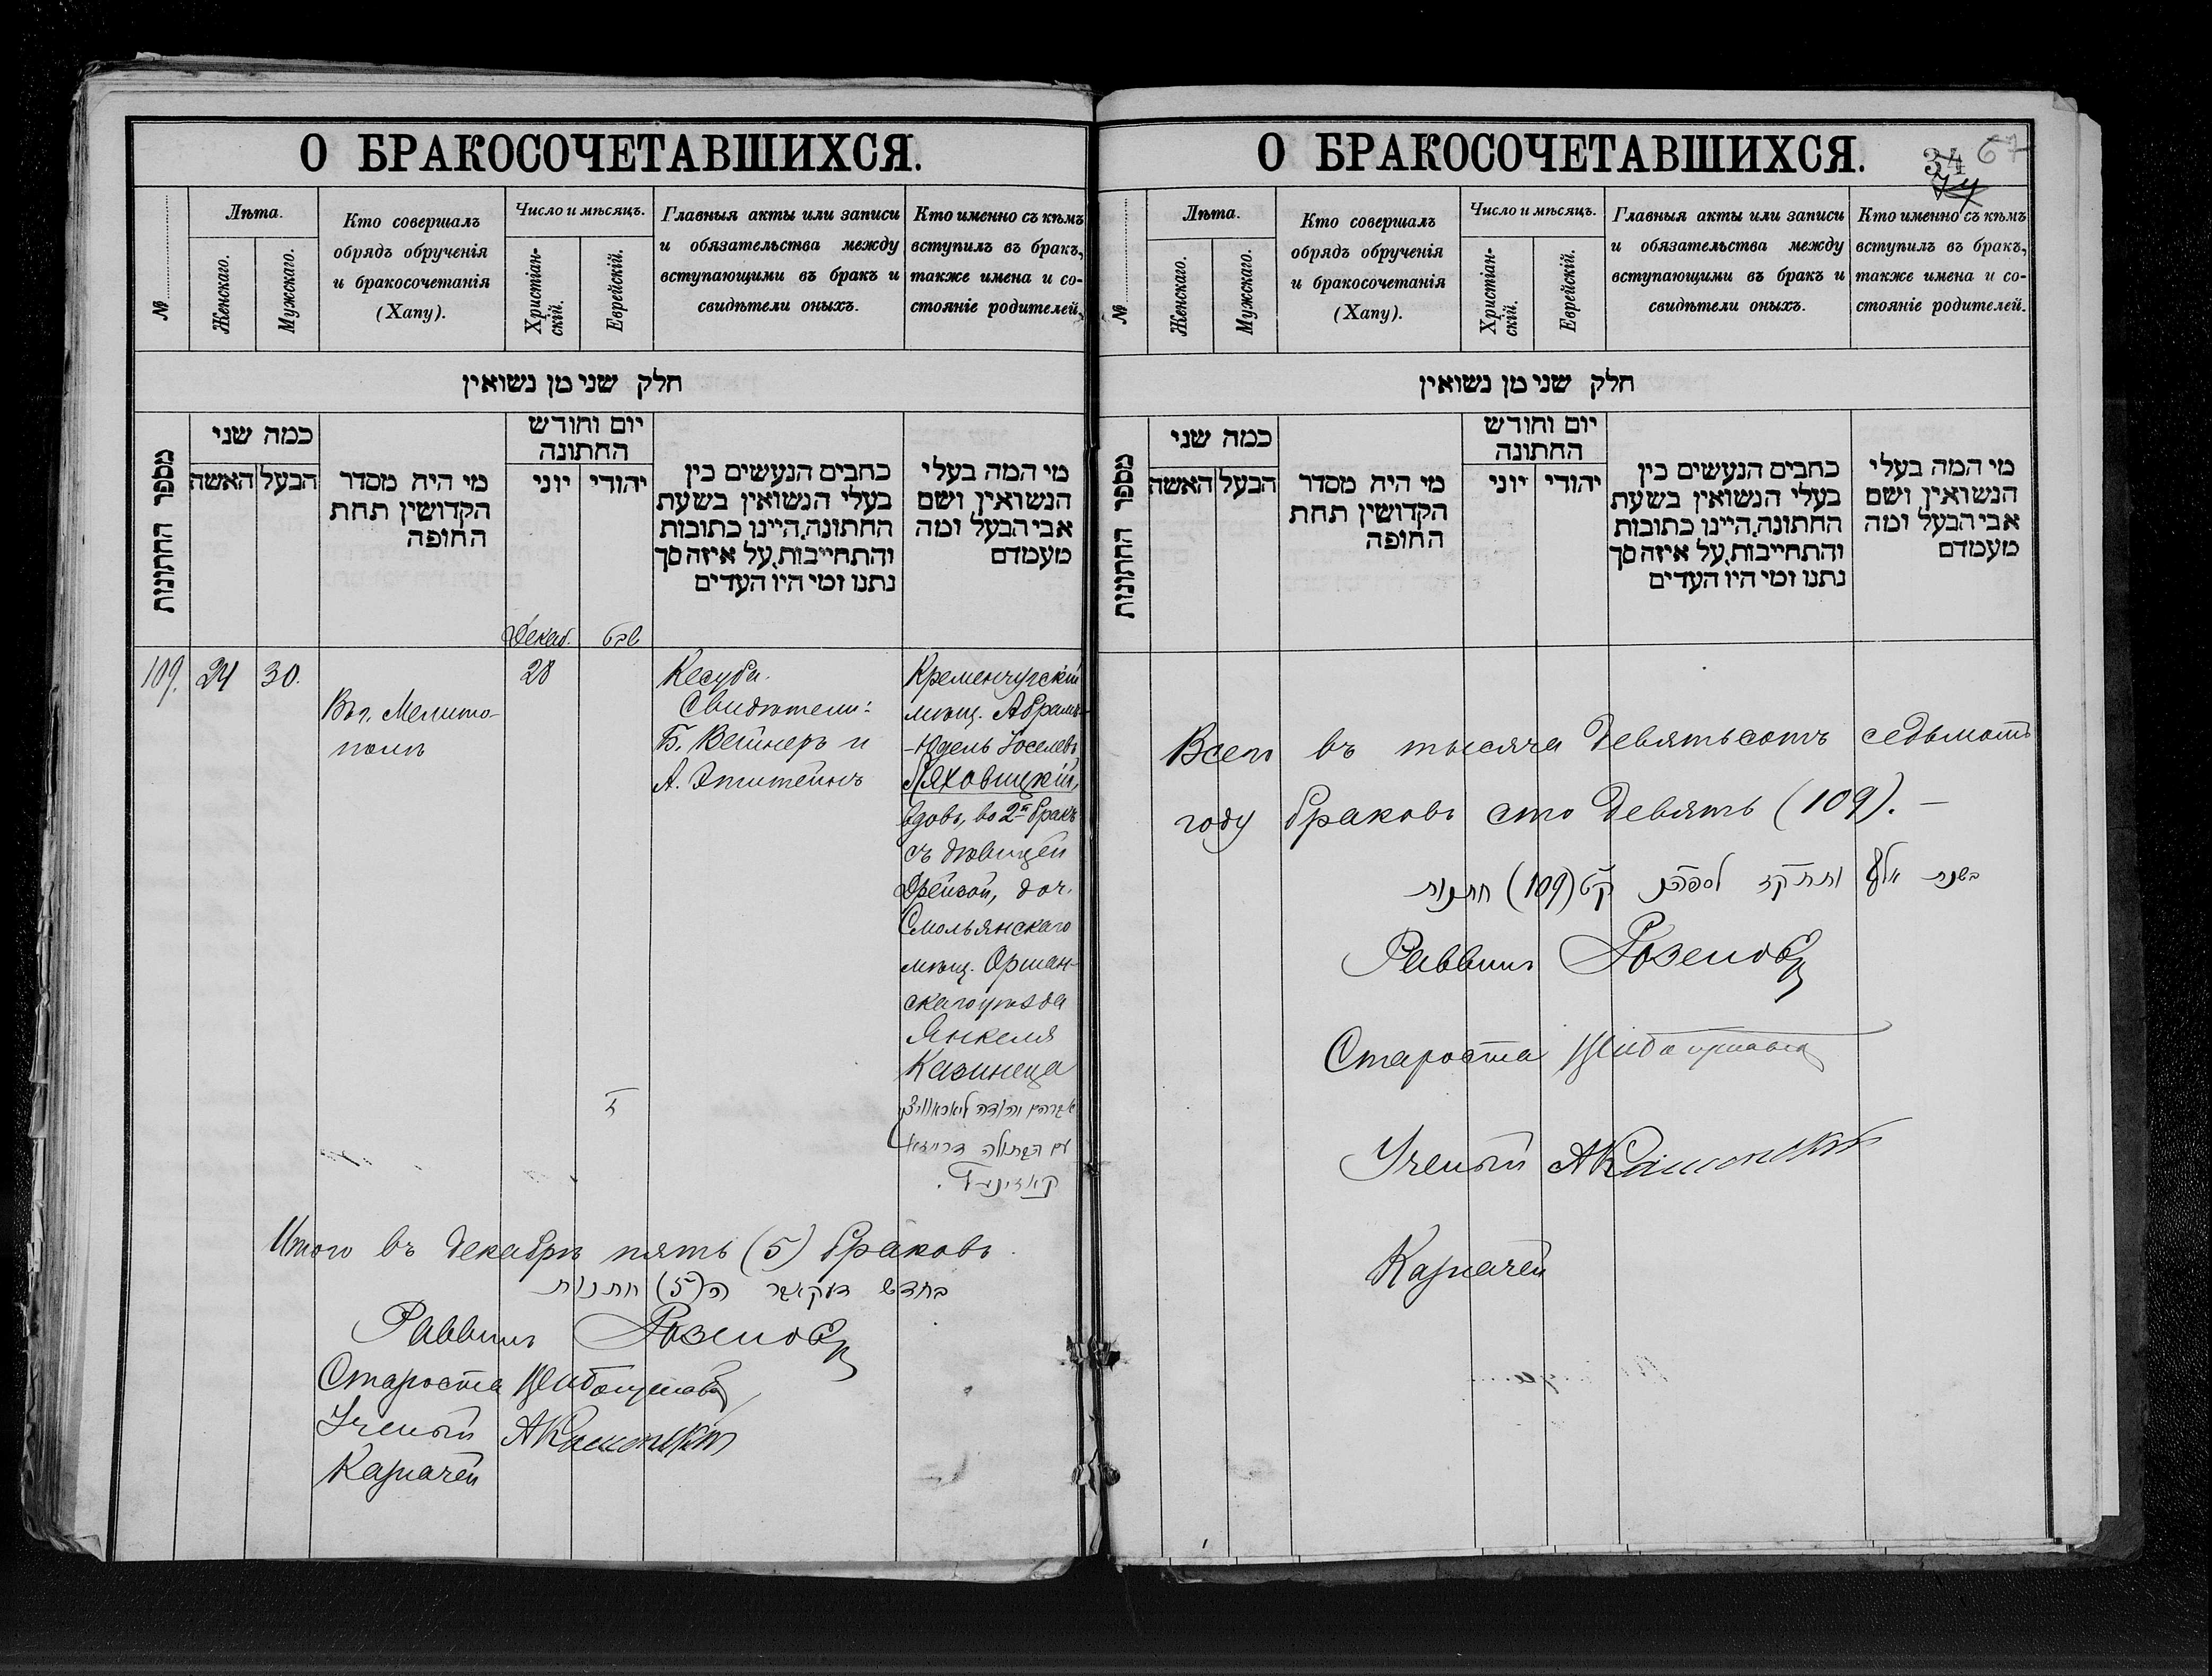 О БРАКОСОЧЕТАВШИХСЯ.
№
Лѣта.
Женскаго.
Мужскаго.
Кто совершалъ
обрядъ обрученія
и бракосочетанія
(Хапу).
Число и мѣсяцъ.
Христіан-
скій.
Еврейскій.
Главныя акты или записи
и обязательства между
вступающими въ бракъ и
свидѣтели оныхъ.
Кто именно съ кѣмъ
вступилъ въ бракъ,
также имена и со-
стояніе родителей.
חלק שני מן נשואין
מספר החתונות
כמה שני
האשה
הבעל
מי היה מסדר
הקדושין תחת
החופה
יום וחודש
החתונה
יוני
יהודי
כתבים הנעשים בין
בעלי הנשואין בשעת
החתונה, היינו כתובות
והתחייבות, על איזה סך
נתנו ומי היו העדים
מי המה בעלי
הנשואין ושם
אבי הבעל ומה
מעמדם
Декаб.
טבת
109.
24
30.
Въ г. Мелито-
полѣ
28
Кесуба.
Свидѣтели:
Б. Вейнеръ и
А. Эпштейнъ
Кременчугскій
мѣщ. Абрамъ-
-Юдель Іоселевъ
Ляховицкій,
вдовъ, во 2й бракъ
съ дѣвицей
Дрейзой, доч.
Смольянскаго
мѣщ. Оршан-
скаго уѣзда
Янкеля
Казинеца
ד
אברהם יהודה ליאכאוויצקי
עם הבתולה דרייזא
קאזינעץ.
Итого въ декабрѣ пять (5) браковъ.
בחדש דעקאבר ה(5) חתנות
Раввинъ
Староста
Ученый
Казначей
О БРАКОСОЧЕТАВШИХСЯ.
34
67
№
Лѣта.
Женскаго.
Мужскаго.
Кто совершалъ
обрядъ обрученія
и бракосочетанія
(Хапу).
Число и мѣсяцъ.
Христіан-
скій.
Еврейскій.
Главныя акты или записи
и обязательства между
вступающими въ бракъ и
свидѣтели оныхъ.
Кто именно съ кѣмъ
вступилъ въ бракъ,
также имена и со-
стояніе родителей.
חלק שני מן נשואין
מספר החתונות
כמה שני
האשה
הבעל
מי היה מסדר
הקדושין תחת
החופה
יום וחודש
החתונה
יוני
יהודי
כתבים הנעשים בין
בעלי הנשואין בשעת
החתונה, היינו כתובות
והתחייבות, על איזה סך
נתנו ומי היו העדים
מי המה בעלי
הנשואין ושם
אבי הבעל ומה
מעמדם
Всего въ тысяча девятьсотъ седьмомъ
году браковъ сто девять (109). —
בשנת אלף ותתקז לספהנ קט (109) חתנות
Раввинъ
Староста
Ученый
Казначей